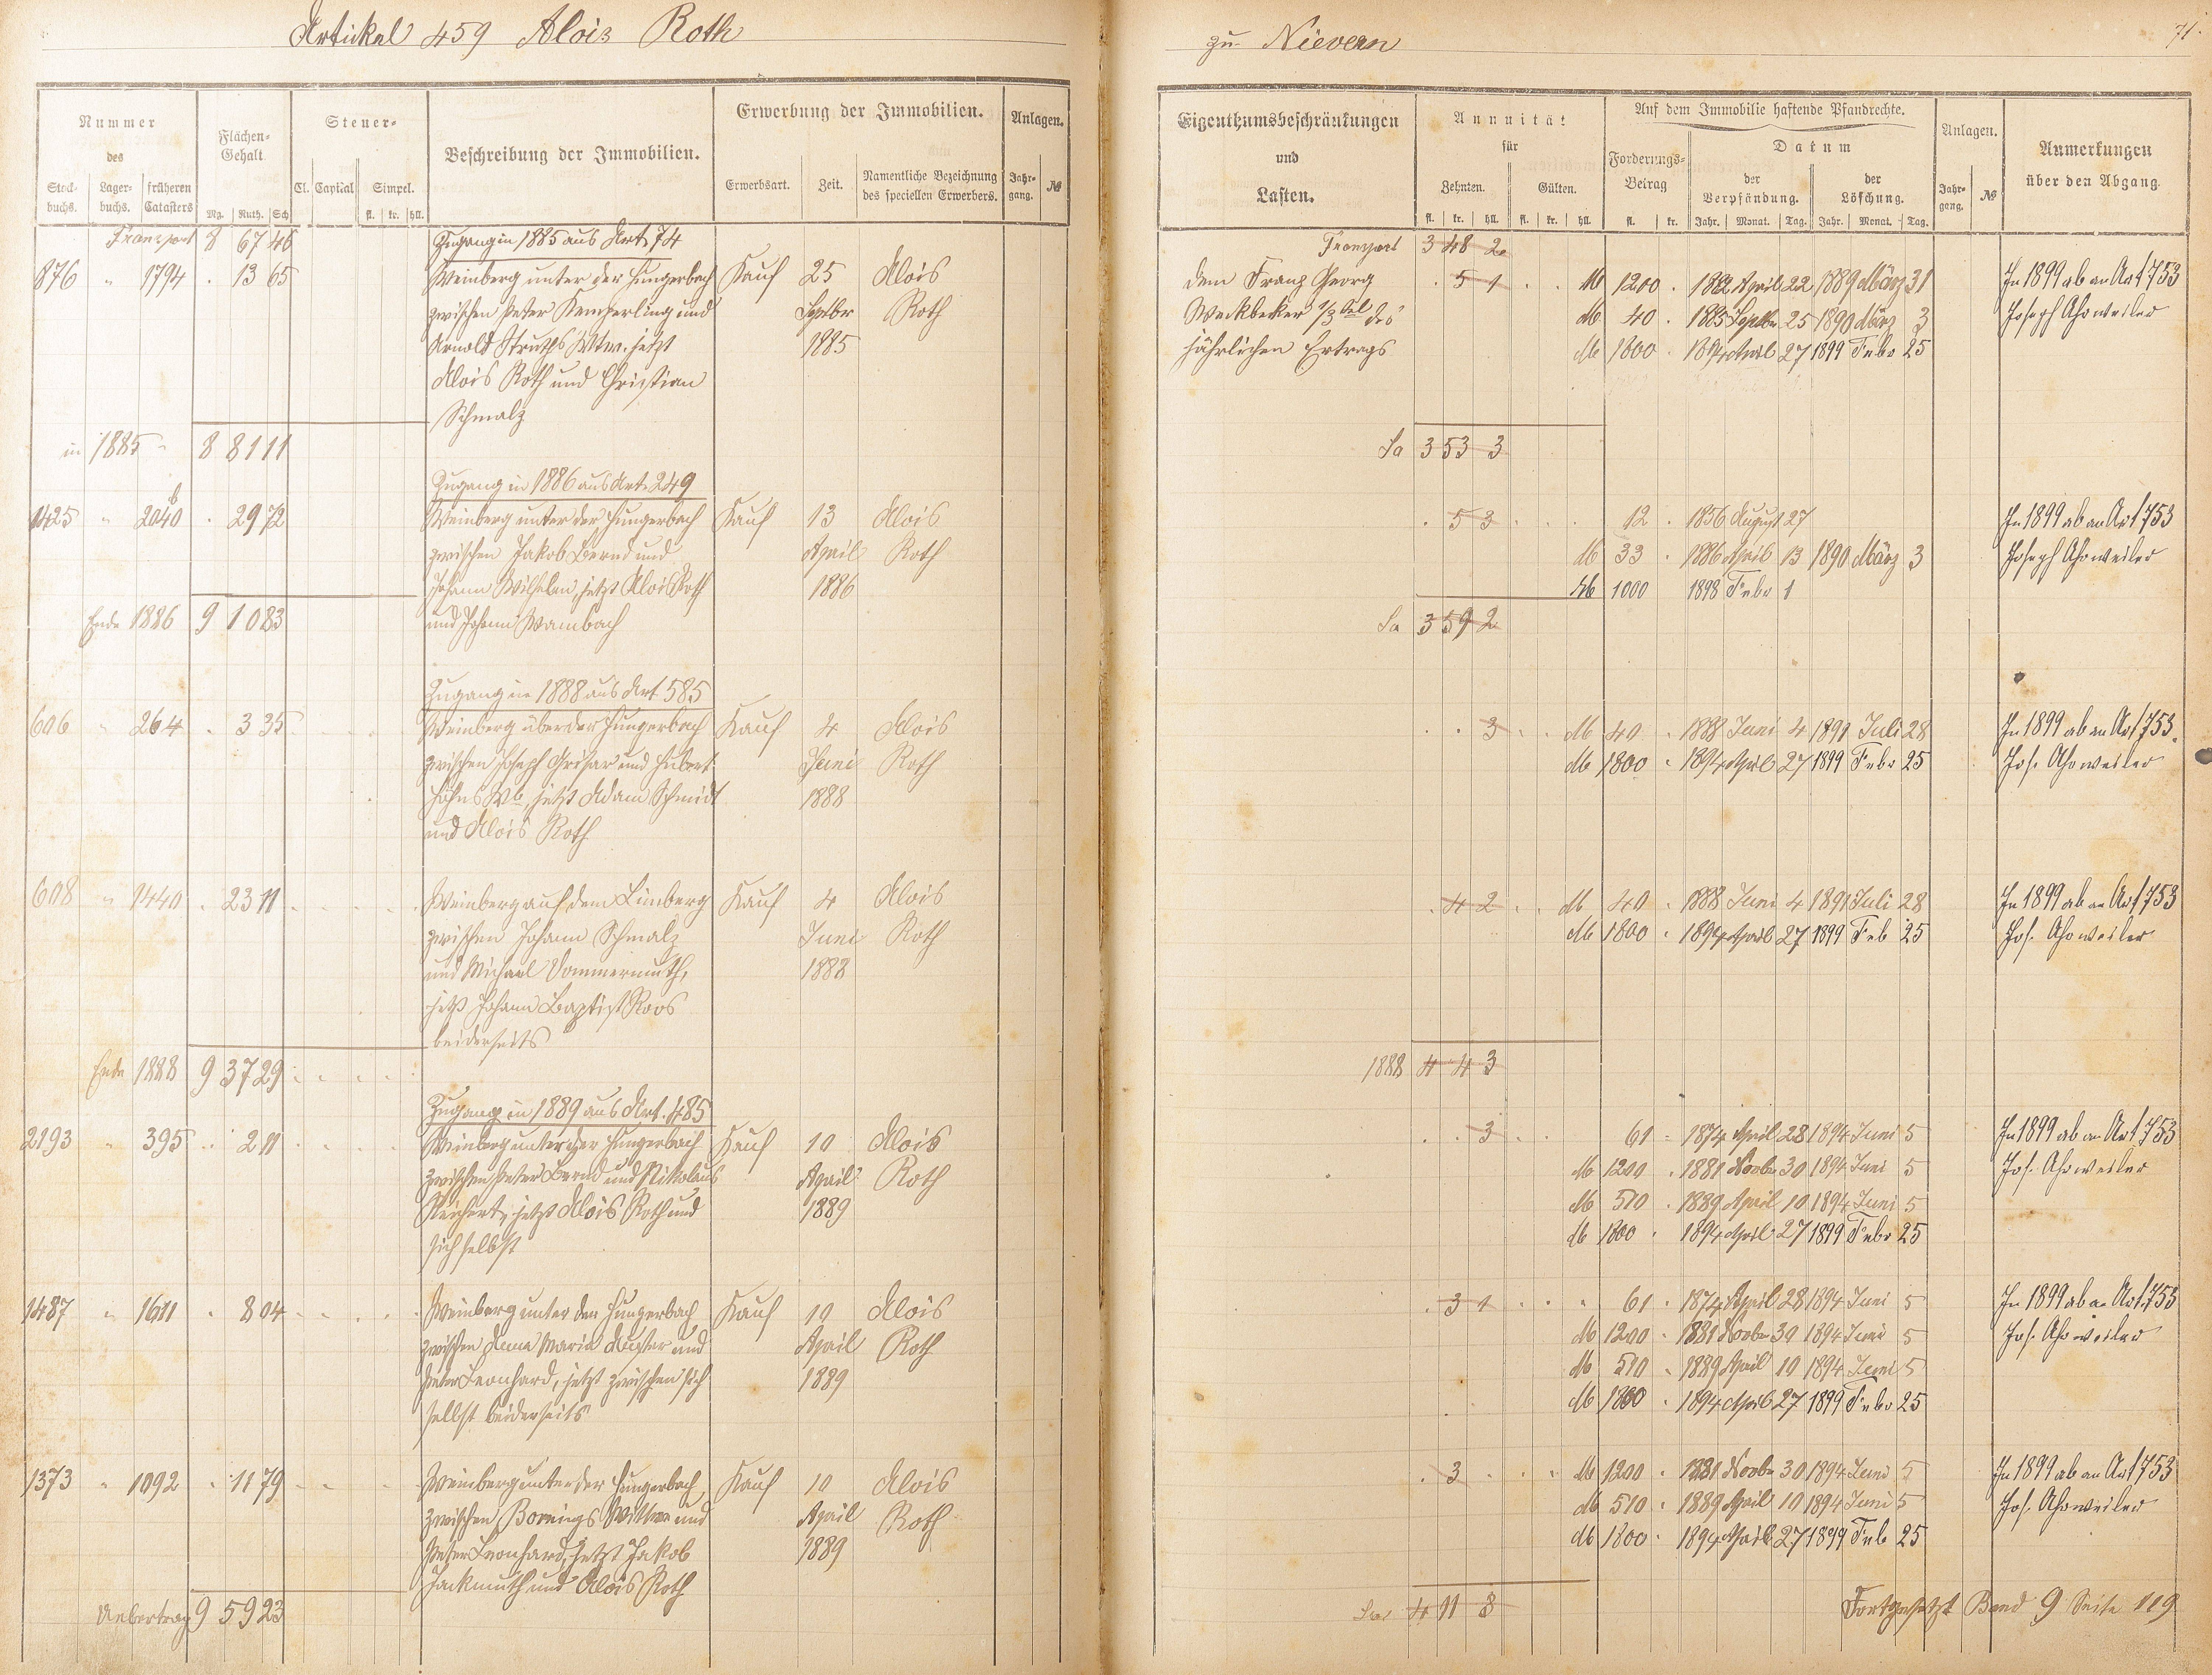 Artickel 459 Alois Roth
Nummer
des
Stock-
buchs.
Lager-
buchs.
früheren
Catasters
Flächen-
Gehalt
Mg. Ruth. Sch.
Steuer-
Cl. Capital Simpel.
fl. kr. hll.
Beschreibung der Immobilien.
Erwerbung der Immobilien.
Erwerbsart. Zeit.
Namentliche Bezeichnung
des speciellen Erwerbers.
Anlagen.
Jahr-
gang.
№
Transport 8 67 46 Zugang in 1885 aus Art. 74
876 " 1794 . 13 65 Weinberg unter der Hungerbach Kauf 25 Alois
zwischen Peter Kemperling und Septbr Roth
Arnold Struths Wtw. jetzt 1885
Alois Roth und Christian
Schmalz
in 1885 8 81 11
Zugang in 1886 aus Art. 249
1425 " 2040 b . 29 72 Weinberg unter der Hungerbach Kauf 13 Alois
zwischen Jakob Bernd und April Roth
Johann Wilhelm, jetzt Alois Roth 1886
Ende 1886 9 10 83 und Johann Wambach
Zugang in 1888 aus Art 585
606 " 264 . 3 35 Weinberg über der Hungerbach Kauf 4 Alois
zwischen Joseph Grisar und Hubert Juni Roth
jetzt Adam Schmidt 1888
und Alois Roth
608 " 1440 . 23 11 Weinberg auf dem Limberg Kauf 4 Alois
zwischen Johann Schmalz Juni Roth
und Michael Dommermuth, 1888
jetzt Johann Baptist Roos
beiderseits
Ende 1888 9 37 29
Zugang in 1889 aus Art. 485
2193 " 395 . 2 11 Weinberg unter der Hungerbach Kauf 10 Alois
zwischen Peter Bernd und Nikolaus April Roth
Reichert, jetzt Alois Roth und 1889
sich selbst
1487 " 1611 . 8 04 Weinberg unter der Hungerbach Kauf 10 Alois
zwischen Anna Maria und April Roth
Peter Leonhard, jetzt zwischen sich 1889
selbst beiderseits
1373 " 1092 . 11 79 Weinberg unter der Hungerbach, Kauf 10 Alois
zwischen Bornings Wittwe und April Roth
Peter Leonhard, jetzt Jakob 1889
Jackmuth und Alois Roth
Uebertrag 9 59 23
zu Nievern
71.
Eigenthumsbeschränkungen
und
Lasten.
Annuität
für
Zehnten. Gülten.
fl. kr. hll. fl. kr. hll.
Auf dem Immobilie haftende Pfandrechte.
Forderungs-
Betrag
fl. kr.
Datum
der
Verpfändung.
der
Löschung.
Jahr. Monat. Tag. Jahr. Monat. Tag.
Anlagen.
Jahr-
gang.
№
Anmerkungen
über den Abgang.
Transport 3 48 2
dem Franz Georg . 5 1 . . M 1200 . 1882 April 22 1889 März 31 In 1899 ab an Art 753
Weckbecker 1/3tel des M 40 . 1885 Septbr 25 1890 März 3 Joseph Ahrweiler
jährlichen Ertrags M 1800 . 1894 April 27 1899 Febr 25
Sa 3 53 3
. 5 3 . . . 12 . 1856 August 27 In 1899 ab an Art 753
M 33 . 1886 April 13 1890 März 3 Joseph Ahrweiler
M 1000 1898 Febr 1
Sa 3 59 2
. . 3 . . M 40 . 1888 Juni 4 1891 Juli 28 In 1899 ab an Art 753.
M 1800 . 1894 April 27 1899 Febr 25 Jos. Ahrweiler
. 4 2 . . M 40 . 1888 Juni 4 1891 Juli 28 In 1899 ab an Art 753
M 1800 . 1894 April 27 1899 Feb 25 Jos. Ahrweiler
1888 4 4 3
. . 3 . . 61 . 1874 April 28 1894 Juni 5 In 1899 ab an Art 753
M 1200 . 1881 Novbr 30 1894 Juni 5 Jos. Ahrweiler
M 510 . 1889 April 10 1894 Juni 5
M 1800 . 1894 April 27 1899 Febr 25
. 3 1 . . . 61 . 1874 April 28 1894 Juni 5 In 1899 ab an Art. 753
M 1200 . 1881 Novbr 30 1894 Juni 5 Jos. Ahrweiler
M 510 . 1889 April 10 1894 Juni 5
M 1800 . 1894 April 27 1899 Febr 25
. 3 . . . M 1200 . 1881 Novbr 30 1894 Juni 5 In 1899 ab an Art 753
M 510 . 1889 April 10 1894 Juni 5 Jos. Ahrweiler
M 1800 . 1894 April 27 1899 Feb 25
Sa. 4 11 3 Fortgesetzt Band 9 Seite 119